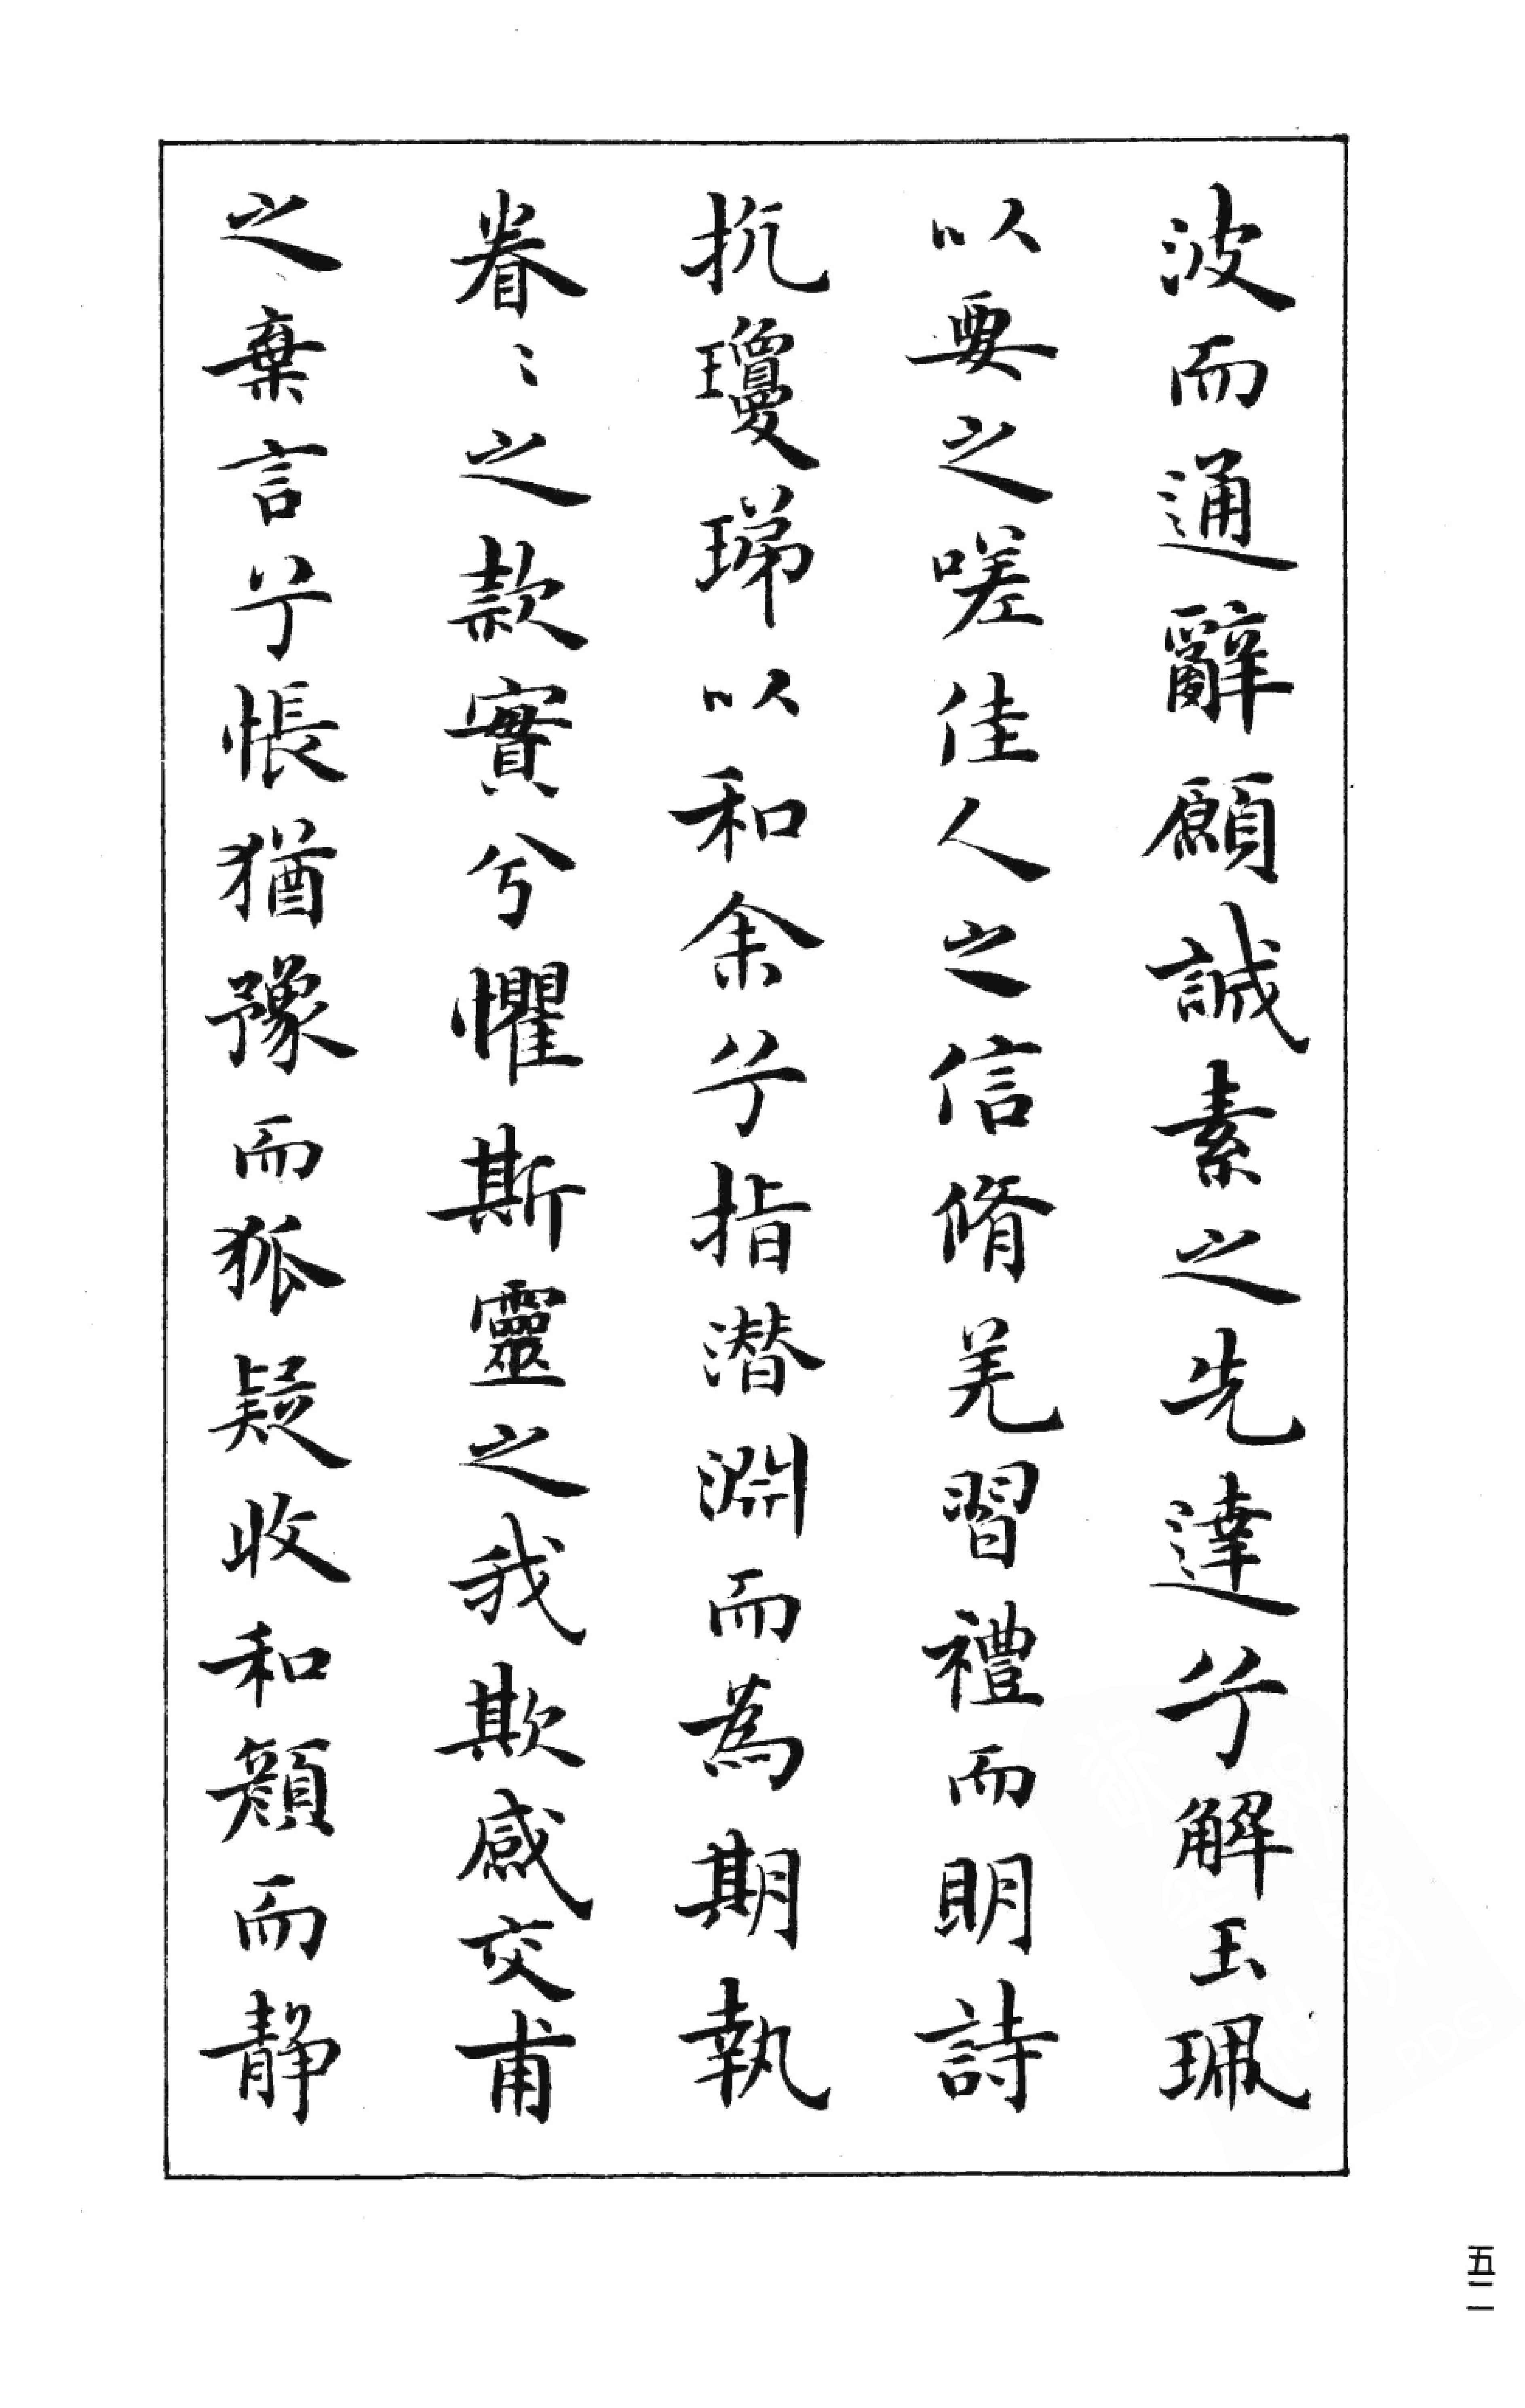 波而通辭願誠素之先達兮解玉珮
以要之嗟佳人之信脩羌習禮而明詩
抗瓊珶以和余兮指潛淵而為期執
眷〻之款實兮懼斯靈之我欺感交甫
之棄言兮悵猶豫而狐疑收和顏而靜
五二